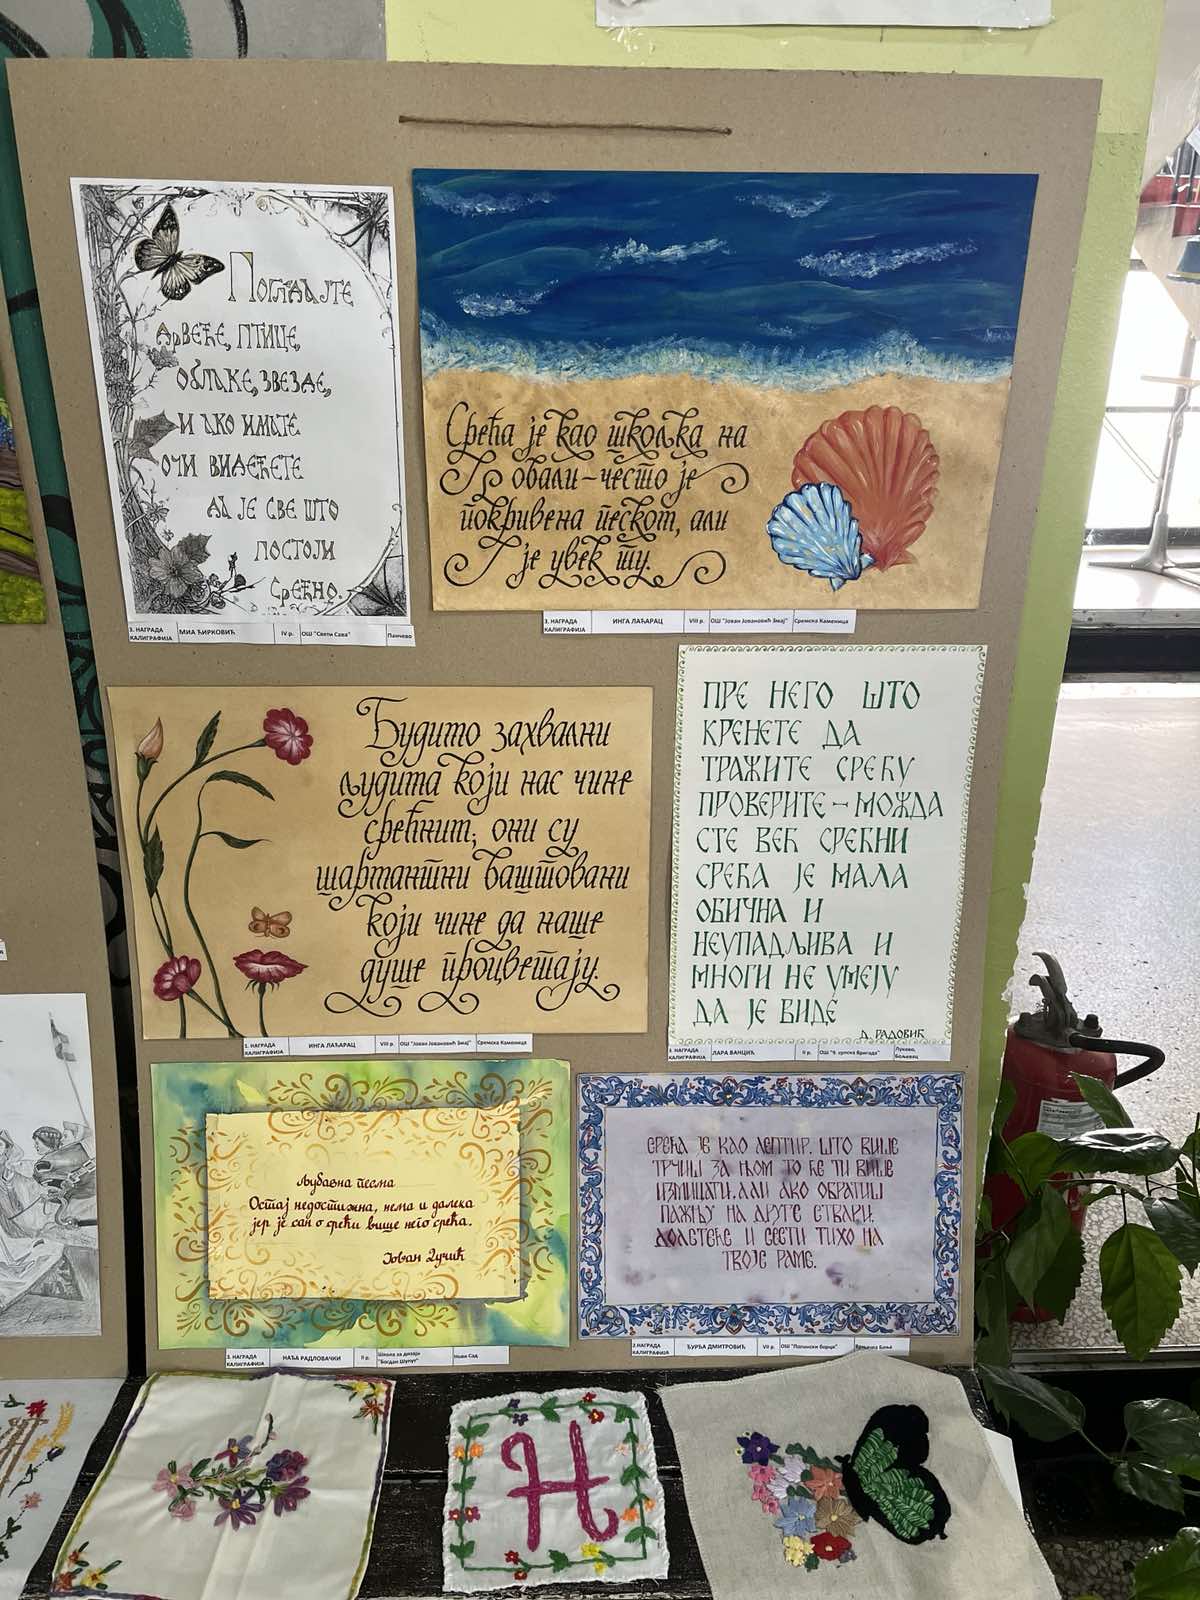 Погледајте
дрвеће, птице,
облаке, звезде,
и ако имате
очи видећете
да је све што
постоји
срећно.
3. НАГРАДА КАЛИГРАФИЈА МИА ЋИРКОВИЋ IV р. ОШ "Свети Сава" Панчево
Срећа је као шкољка на
обали – често је
покривена песком, али
је увек ту.
3. НАГРАДА КАЛИГРАФИЈА ИНГА ЛАЂАРАЦ VIII р. ОШ "Јован Јовановић Змај" Сремска Каменица
Будимо захвални
људима који нас чине
срећним; они су
шармантни баштовани
који чине да наше
душе процветају.
1. НАГРАДА КАЛИГРАФИЈА ИНГА ЛАЂАРАЦ VIII р. ОШ "Јован Јовановић Змај" Сремска Каменица
ПРЕ НЕГО ШТО
КРЕНЕТЕ ДА
ТРАЖИТЕ СРЕЋУ
ПРОВЕРИТЕ – МОЖДА
СТЕ ВЕЋ СРЕЋНИ
СРЕЋА ЈЕ МАЛА
ОБИЧНА И
НЕУПАДЉИВА И
МНОГИ НЕ УМЕЈУ
ДА ЈЕ ВИДЕ
Д. РАДОВИЋ
НАГРАДА КАЛИГРАФИЈА ЛАРА ВАНЦИЋ II р. ОШ "9. српска бригада" Бољевац
Љубавна песма
Остај недостижна, нема и далека
јер је сан о срећи више него срећа.
Јован Дучић
3. НАГРАДА КАЛИГРАФИЈА НАЂА РАДЛОВАЧКИ II р. Школа за дизајн "Богдан Шупут" Нови Сад
СРЕЋА ЈЕ КАО ЛЕПТИР. ШТО ВИШЕ
ТРЧИШ ЗА ЊОМ ТО ЋЕ ТИ ВИШЕ
ИЗМИЦАТИ. АЛИ АКО ОБРАТИШ
ПАЖЊУ НА ДРУГЕ СТВАРИ.
ДОЛЕТЕЋЕ И СЕСТИ ТИХО НА
ТВОЈЕ РАМЕ.
2. НАГРАДА КАЛИГРАФИЈА ЂУРЂА ДМИТРОВИЋ VII р. ОШ "Попински борци" Врњачка Бања
Н